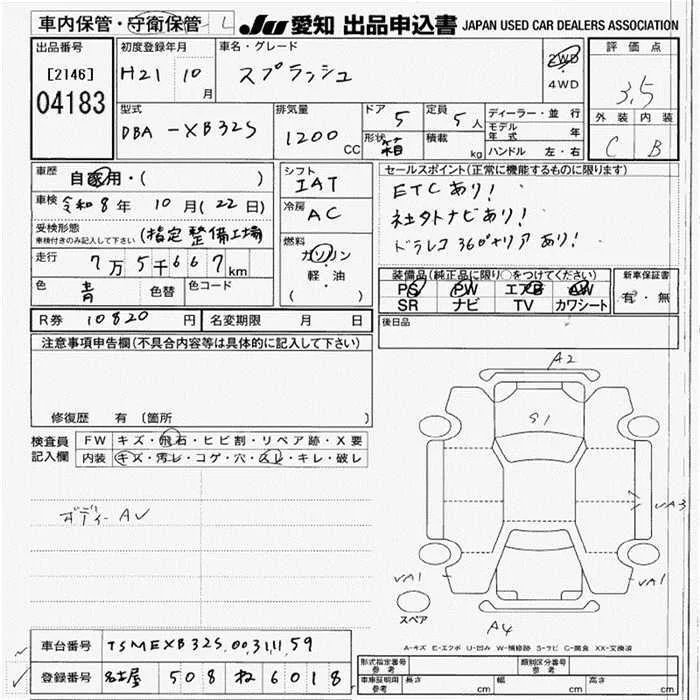 車内保管・守衛保管 L JU 愛知 出品申込書 JAPAN USED CAR DEALERS ASSOCIATION
出品番号 初度登録年月 車名・グレード 評価点
[2146] H21 10月 スプラッシュ 2WD・4WD 3.5
04183
型式 排気量 ドア 5 定員 5人 ディーラー・並行 外装 内装
DBA-XB32S 1200CC 形状 箱 積載 kg モデル年式 年 C B
ハンドル 左・右
車歴 自家用・( ) シフト IAT セールスポイント(正常に機能するものに限ります)
車検 令和8年 10月(22日) 冷房 AC ETCあり!
受検形態 車検付きのみ記入して下さい (指定整備工場) 社外ナビあり!
走行 7万5千667km 燃料 ガソリン 軽・油 ( ) ドラレコ あり!
色 青 色替 色コード 装備品(純正品に限り○をつけてください) 新車保証書
PS PW エアB AW 有・無
SR ナビ TV カワシート
R券 10820円 名変期限 月 日 後日品
注意事項申告欄(不具合内容等は具体的に記入して下さい)
修復歴 有 (箇所
検査員記入欄 FW キズ・飛石・ヒビ割・リペア跡・X要
内装 キズ・汚レ・コゲ・穴・スレ・キレ・破レ
ボディー AU
A2
S1
UA3
UA1
UA1
スペア
A4
A-キズ E-エクボ U-凹み W-補修跡 S-サビ C-腐食 XX-交換済
車台番号 TSMEXB32S00311159
登録番号 名古屋 508 ね 6018
形式指定番号 参考 類別区分番号 参考
車庫証明用 参考 長さ cm 幅 cm 高さ cm